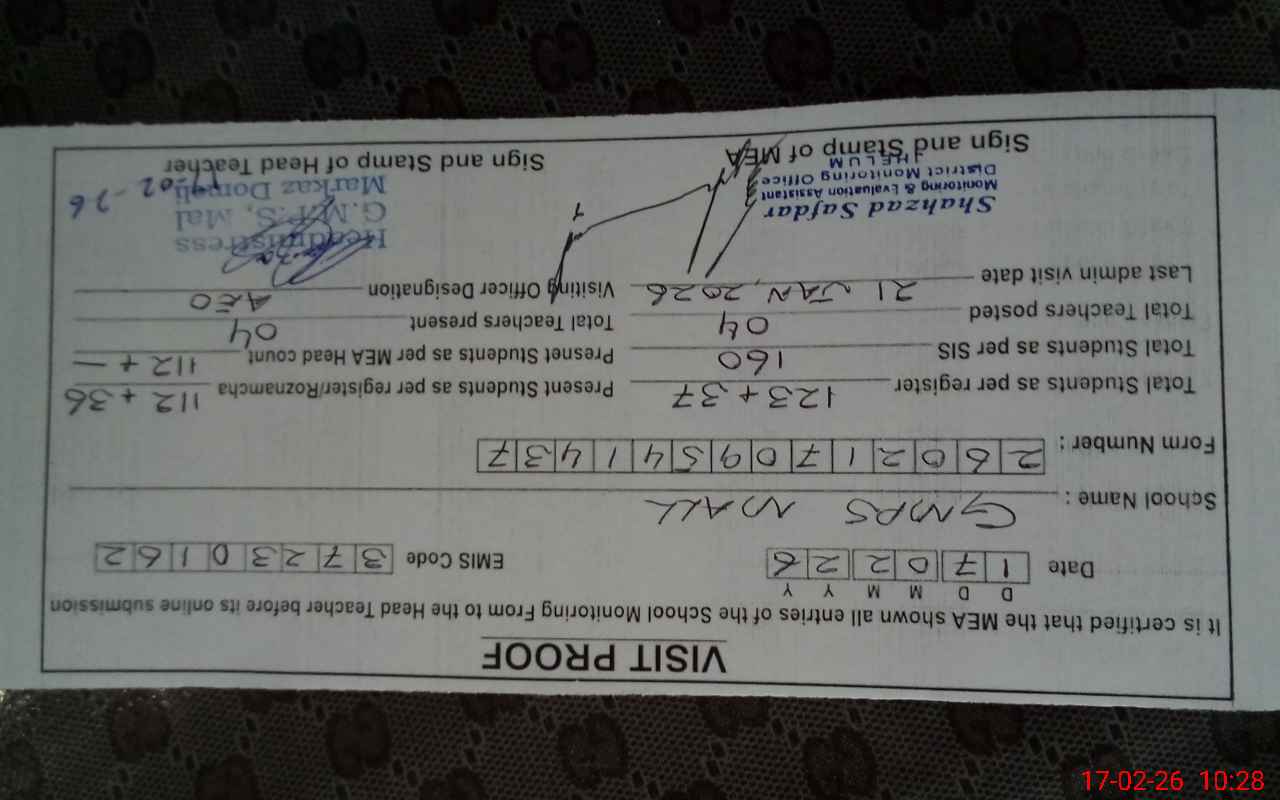 VISIT PROOF
It is certified that the MEA shown all entries of the School Monitoring From to the Head Teacher before its online submission
D D M M Y Y
Date 1 7 0 2 2 6 EMIS Code 3 7 2 3 0 1 6 2
School Name : GMPS MALL
Form Number : 2 6 0 2 1 7 0 9 5 4 1 4 3 7
Total Students as per register 123 + 37 Present Students as per register/Roznamcha 112 + 36
Total Students as per SIS 160 Presnet Students as per MEA Head count 112 + —
Total Teachers posted 04 Total Teachers present 04
Last admin visit date 21 JAN, 2026 Visiting Officer Designation AEO
Shahzad Safdar
Monitoring & Evaluation Assistant
District Monitoring Office
JHELUM
Headmistress
G.M.P.S, Mal
Markaz Domeli
02-26
Sign and Stamp of MEA Sign and Stamp of Head Teacher
17-02-26 10:28